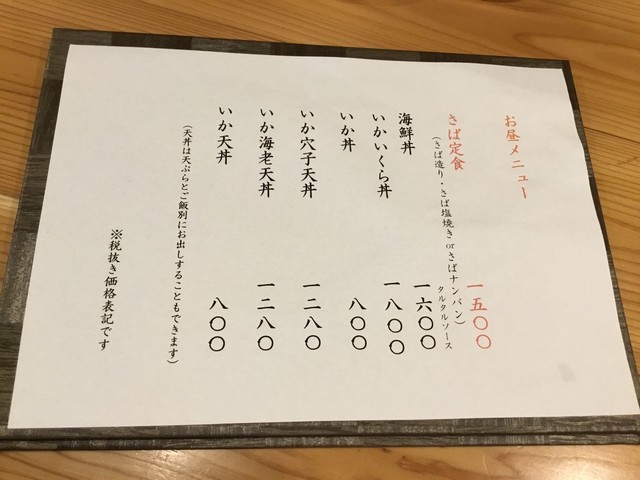 お昼メニュー
さば定食 一五〇〇
(さば造り・さば塩焼き orさばナンバン)
タルタルソース
海鮮丼 一六〇〇
いかいくら丼 一八〇〇
いか丼 八〇〇
いか穴子天丼 一二八〇
いか海老天丼 一二八〇
いか天丼 八〇〇
(天丼は天ぷらとご飯別にお出しすることもできます)
※税抜き価格表記です